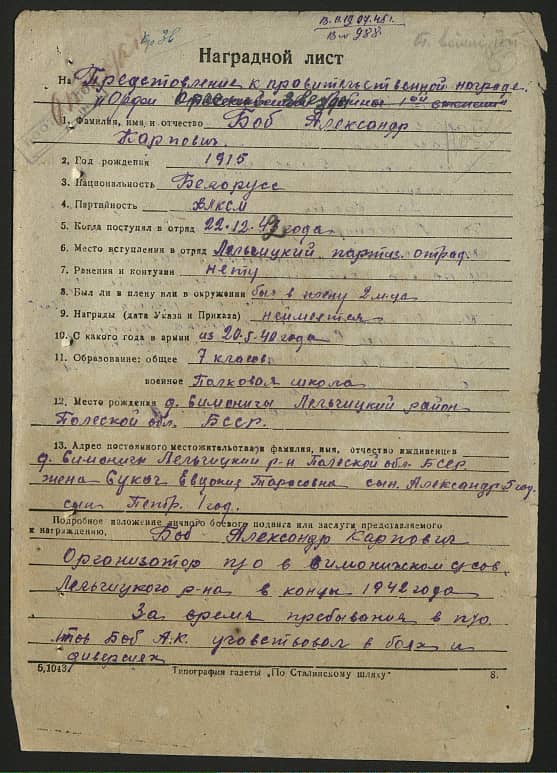 В.н. 19 07.45г.
В № 988
Наградной лист
На Представление к правительственной награде.
1. Фамилия, имя и отчество Боб Александр
Карпович.
2. Год рождения 1915
3. Национальность Белорусс
4. Партийность ВЛКСМ
5. Когда поступил в отряд 22.12.42 года
6. Место вступления в отряд Лельчицкий партиз. отряд.
7. Ранения и контузии нету
8. Был ли в плену или в окружении был в плену 2 м-ца
9. Награды (дата Указа и Приказа) неимеется
10. С какого года в армии из 20.5.40 года
11. Образование: общее 7 класов
военное Полковая школа
12. Место рождения д. Симоничи Лельчицкий район
Полеской обл. БССР.
13. Адрес постоянного местожительства и фамилия, имя, отчество иждивенцев
д. Симоничи Лельчицкий р-н Полеской обл. БССР
жена Сукач Тарасовна сын. Александр 5 год.
сын Петр. 1 год.
Подробное изложение личного боевого подвига или заслуги представляемого
к награждению. Боб Александр Карпович
Организатор п/о в Симонижском с/сов.
Лельчицкого р-на в конци 1942 года
За время пребывания в п/о.
тов Боб А.К. учавствовал в боях и
диверсиях
5,1043г Типография газеты „По Сталинскому шляху“ 8.